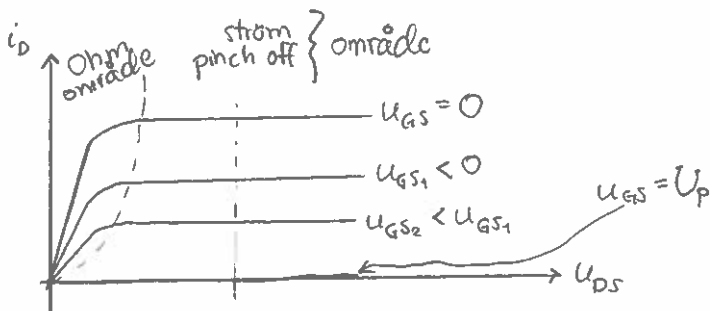 i_D
Ohm
område
ström
pinch off } område
u_GS = 0
u_GS1 < 0
u_GS2 < u_GS1
u_GS = U_p
u_DS